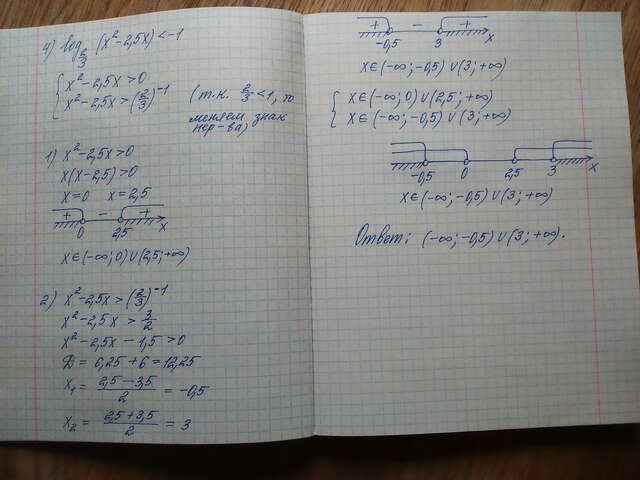 4) log_{2/3} (x²-2,5x) < -1
{ x²-2,5x>0
x²-2,5x>(2/3)⁻¹
(т.к. 2/3<1, то
меняем знак
нер-ва)
1) x²-2,5x>0
x(x-2,5)>0
x=0 x=2,5
+ - +
0 2,5 x
x∈(-∞; 0)∪(2,5; +∞)
2) x²-2,5x>(2/3)⁻¹
x²-2,5x > 3/2
x²-2,5x-1,5>0
D=6,25+6=12,25
x₁ = (2,5-3,5)/2 = -0,5
x₂ = (2,5+3,5)/2 = 3
+ - +
-0,5 3 x
x∈(-∞; -0,5)∪(3; +∞)
{ x∈(-∞; 0)∪(2,5; +∞)
x∈(-∞; -0,5)∪(3; +∞)
-0,5 0 2,5 3 x
x∈(-∞; -0,5)∪(3; +∞)
Ответ: (-∞; -0,5)∪(3; +∞).